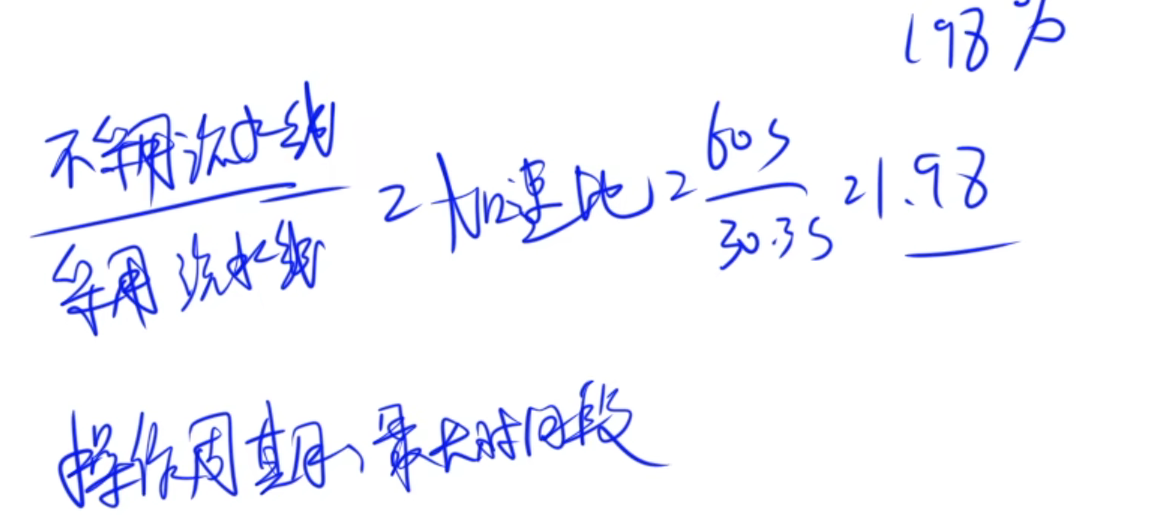 198%
不采用流水线
采用流水线
=加速比=60s/30.3s=1.98
操作周期、最大时间段